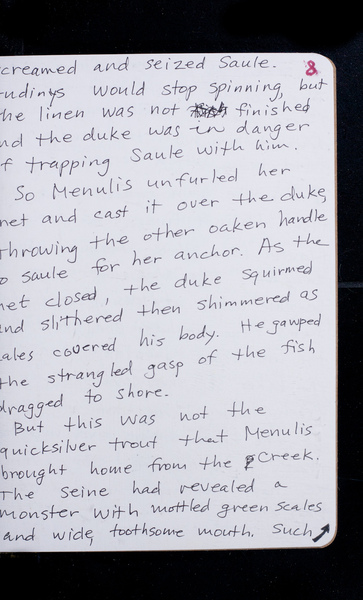 creamed and seized Saule. 8
udinys would stop spinning, but
he linen was not finished
nd the duke was in danger
f trapping Saule with him.
So Menulis unfurled her
net and cast it over the duke,
throwing the other oaken handle
o saule for her anchor. As the
net closed, the duke squirmed
nd slithered then shimmered as
ales covered his body. He gawped
the strangled gasp of the fish
dragged to shore.
But this was not the
quicksilver trout that Menulis
brought home from the Creek.
The seine had revealed a
monster with mottled green scales
and wide, toothsome mouth. Such